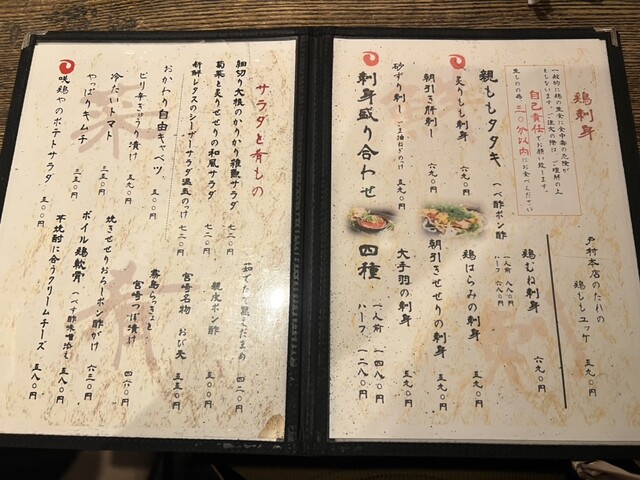 鶏刺身
一般的に鶏の生食は食中毒の危険が
ともないます。ご注文の際は、ご理解の上
自己責任でお願い致します。
生ものの為三〇分以内にお食べください
戸村本店のたれの
鶏ももユッケ 五九〇円
鶏むね刺身 六九〇円
親ももタタキ へべ酢ポン酢
一人前 八八〇円
ハーフ 六八〇円
炙りもも刺身 六九〇円
鶏はらみの刺身 五九〇円
朝引き肝刺し 六九〇円
朝引きせせりの刺身 五九〇円
砂ずり刺し ごま油ねぎのっけ 五九〇円
大手羽の刺身 五九〇円
刺身盛り合わせ 四種
一人前 一四八〇円
ハーフ 一二八〇円
サラダと肴もの
細切り大根のかりかり雑魚サラダ 七二〇円
菊菜と炙りせせりの和風サラダ 七二〇円
新鮮レタスのシーザーサラダ温玉のっけ 七二〇円
おかわり自由キャベツ 三〇〇円
ピリ辛きゅうり漬け 三九〇円
冷たいトマト 三五〇円
やっぱりキムチ 三五〇円
咲鶏やのポテトサラダ 五〇〇円
茹でたて黒えだまめ 四二〇円
親皮ポン酢 五五〇円
宮崎名物 おび天 五五〇円
霧島らっきょと
宮崎つぼ漬け 四六〇円
焼きせせりおろしポン酢がけ 六三〇円
ボイル鶏軟骨 へべす酢味噌添え 五八〇円
芋焼酎に合うクリームチーズ 五八〇円